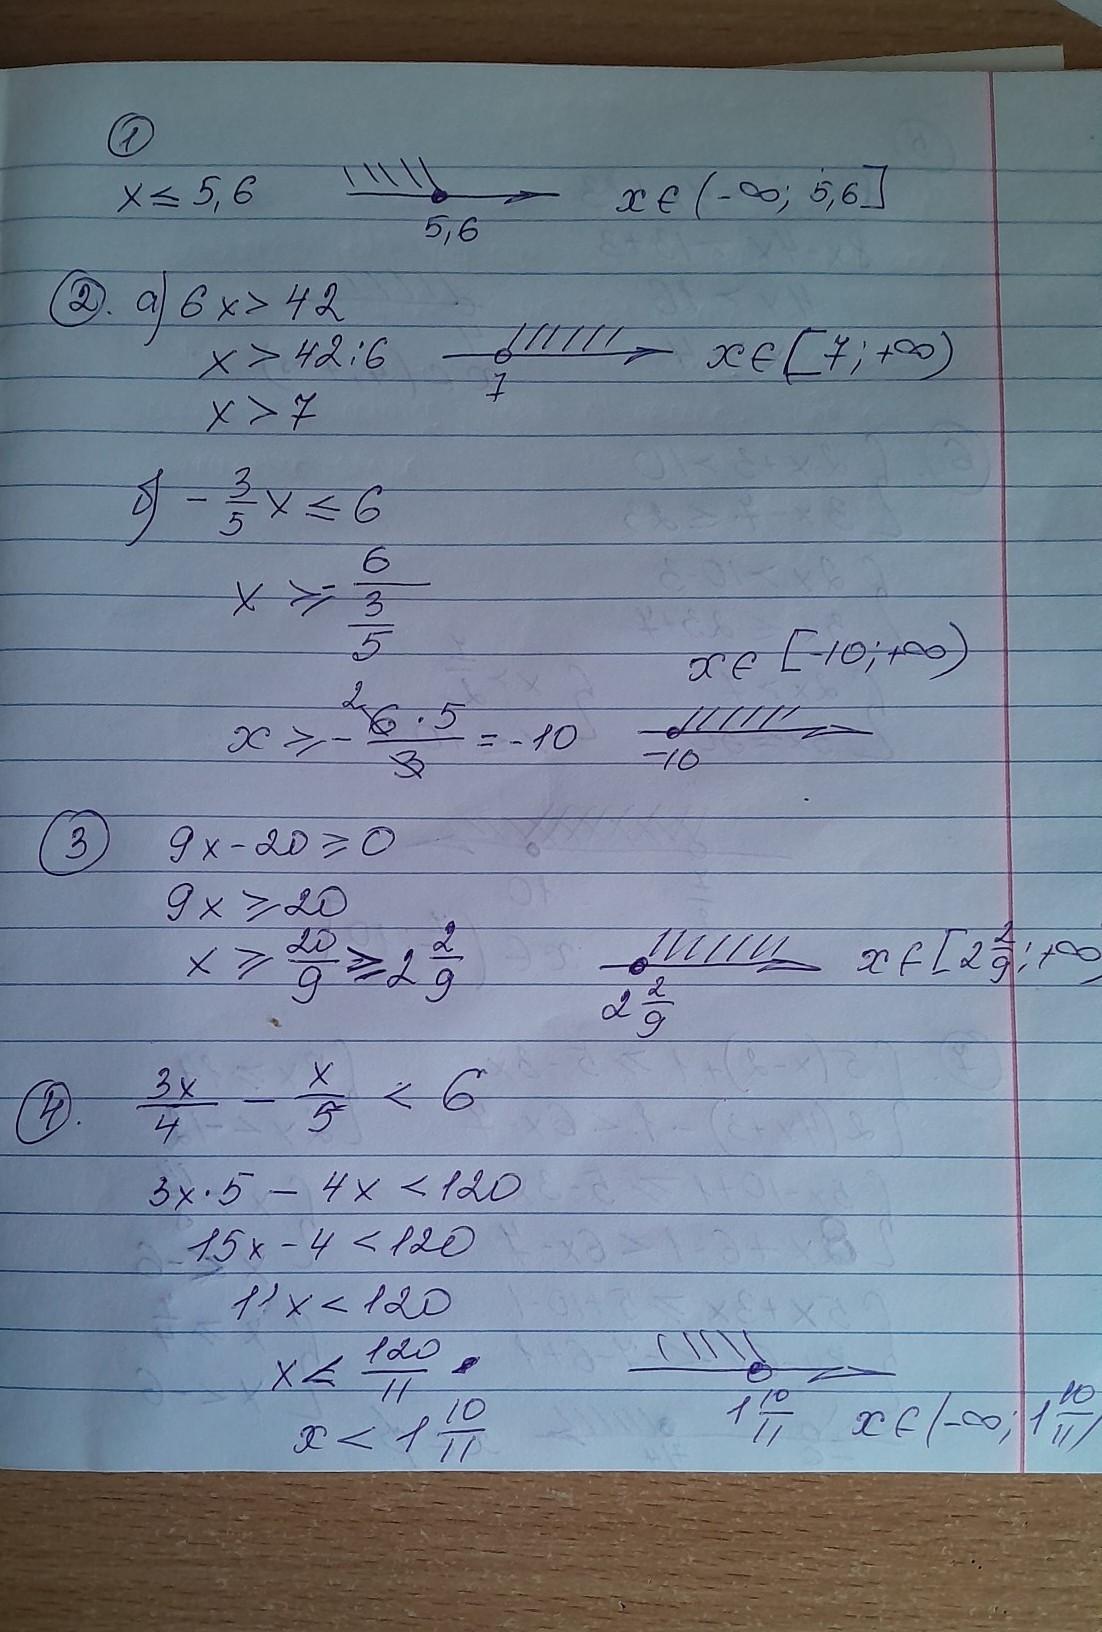 1
x ≤ 5,6   5,6   x ∈ (-∞; 5,6]
2. а) 6x > 42
x > 42:6   7   x ∈ [7; +∞)
x > 7
б) -3/5 x ≤ 6
x ≥ - 6/(3/5)
x ∈ [-10; +∞)
x ≥ - 2 6·5/3 = -10   -10
3 9x - 20 ≥ 0
9x ≥ 20
x ≥ 20/9 ≥ 2 2/9   2 2/9   x ∈ [2 2/9; +∞
4. 3x/4 - x/5 < 6
3x·5 - 4x < 120
15x - 4 < 120
11x < 120
x < 120/11
x < 1 10/11   1 10/11   x ∈ (-∞; 1 10/11)